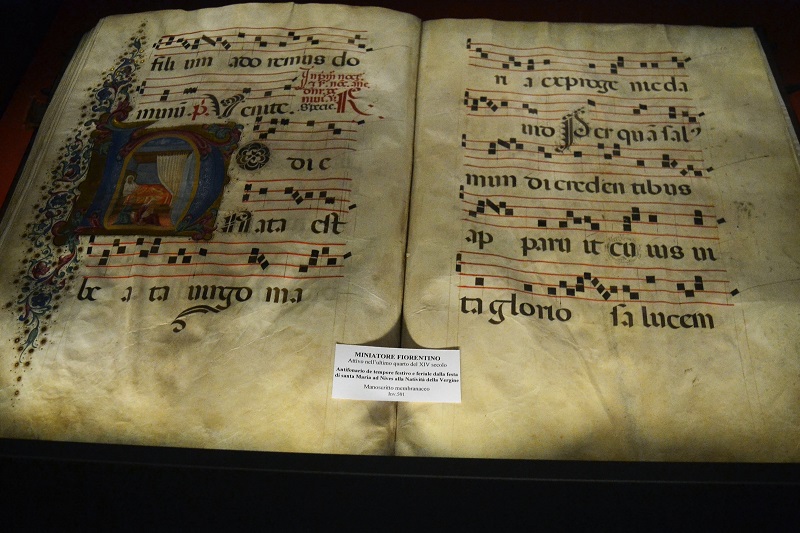 fili um ado remus do
mini. Venite.
H odi e
nata est
be a ta virgo ma
ni a ex proge nie da
uid Per quã sal⁊
mun di creden tibus
ap paru it cu ius ui
ta glorio sa lucem
MINIATORE FIORENTINO
Attivo nell'ultimo quarto del XIV secolo
Antifonario de tempore festivo e feriale dalla festa
di santa Maria ad Nives alla Natività della Vergine
Manoscritto membranaceo
Inv.581